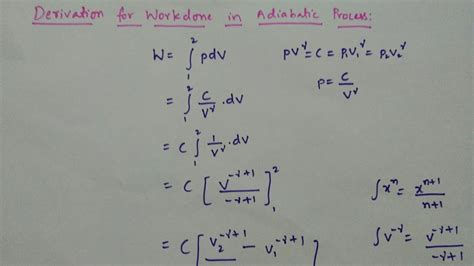 Derivation for Workdone in Adiabatic Process:
W = ∫₁² pdV    PV^γ = C = P₁V₁^γ = P₂V₂^γ
= ∫₁² C/V^γ . dV    P = C/V^γ
= C ∫₁² 1/V^γ . dV
= C [ V^(-γ+1) / (-γ+1) ]₁²    ∫x^n = x^(n+1) / (n+1)
= C [ V₂^(-γ+1) - V₁^(-γ+1) ]    ∫V^(-γ) = V^(-γ+1) / (-γ+1)